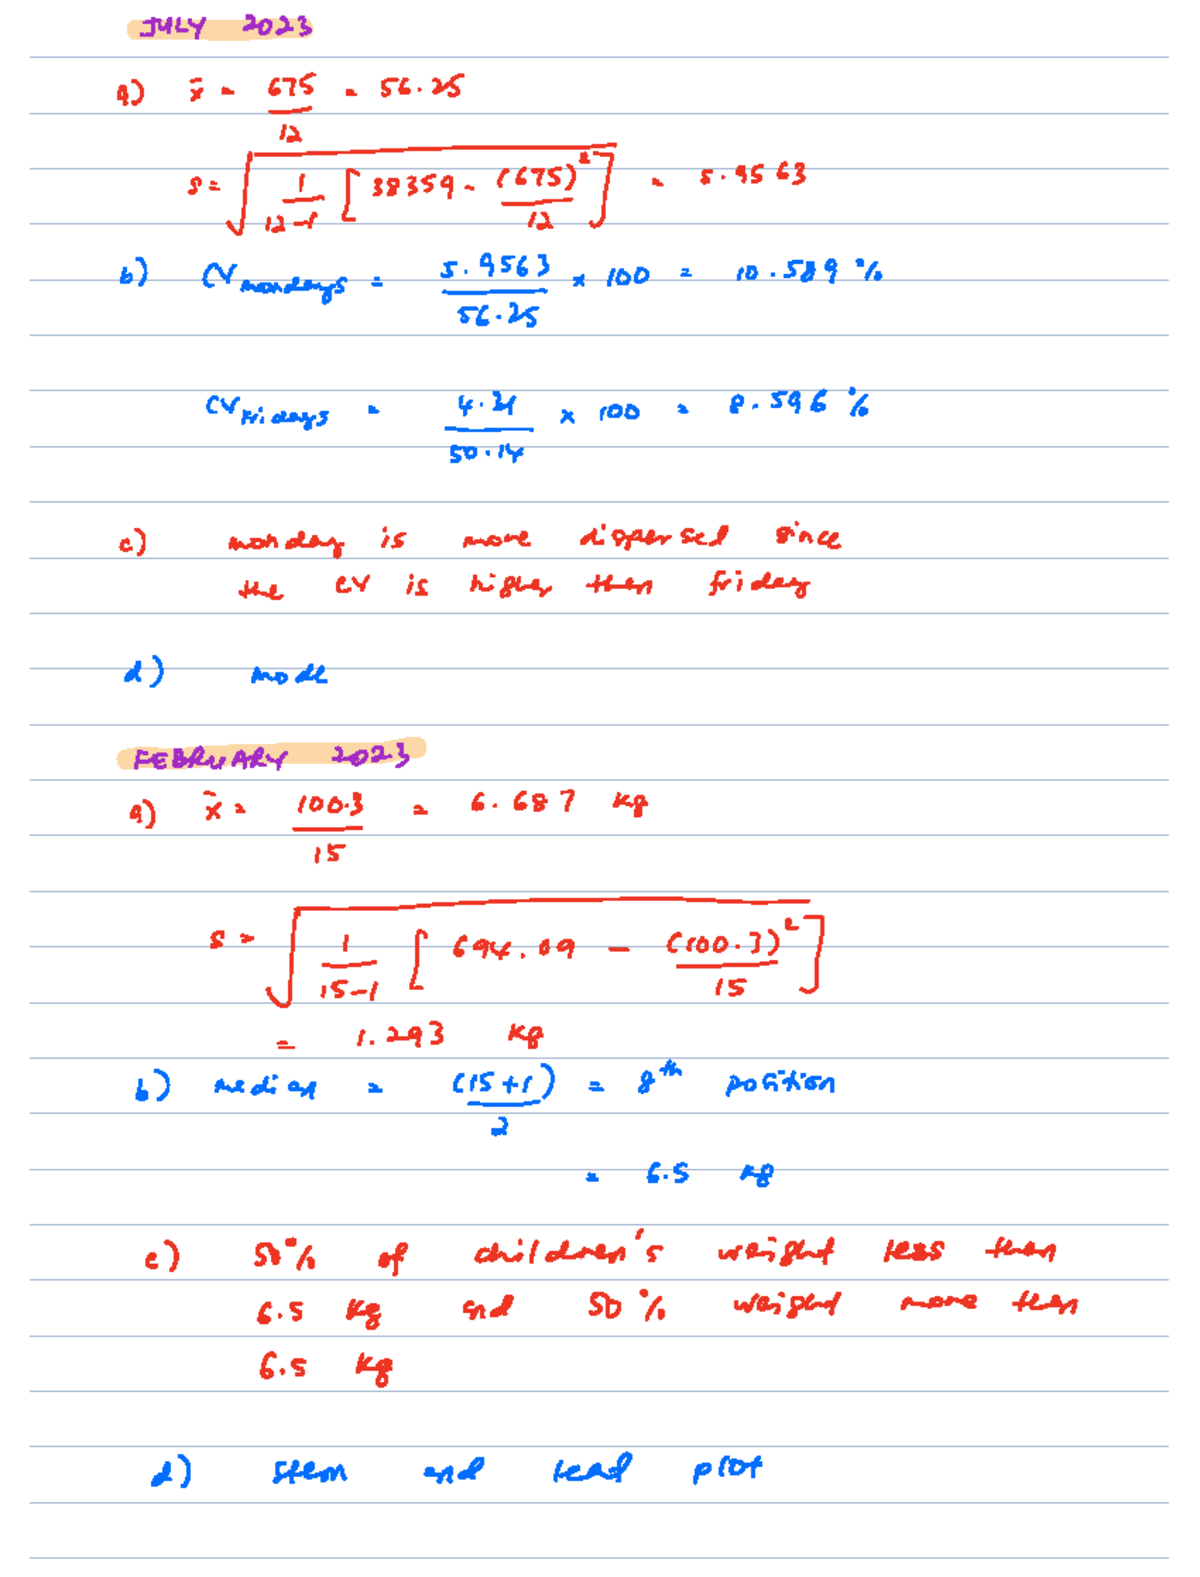 JULY 2023
a) x̄ = 675/12 = 56.25
s = √(1/(12-1) [38359 - (675)²/12]) = 5.9563
b) CV mondays = 5.9563/56.25 × 100 = 10.589 %
CV Fridays = 4.31/50.14 × 100 = 8.596 %
c) monday is more dispersed since
the CV is higher then friday
d) mode
FEBRUARY 2023
a) x̄ = 100.3/15 = 6.687 kg
s = √(1/(15-1) [694.09 - (100.3)²/15])
= 1.293 kg
b) median = (15+1)/2 = 8th position
= 6.5 kg
c) 50% of children's weight less than
6.5 kg and 50% weight more than
6.5 kg
d) stem and leaf plot